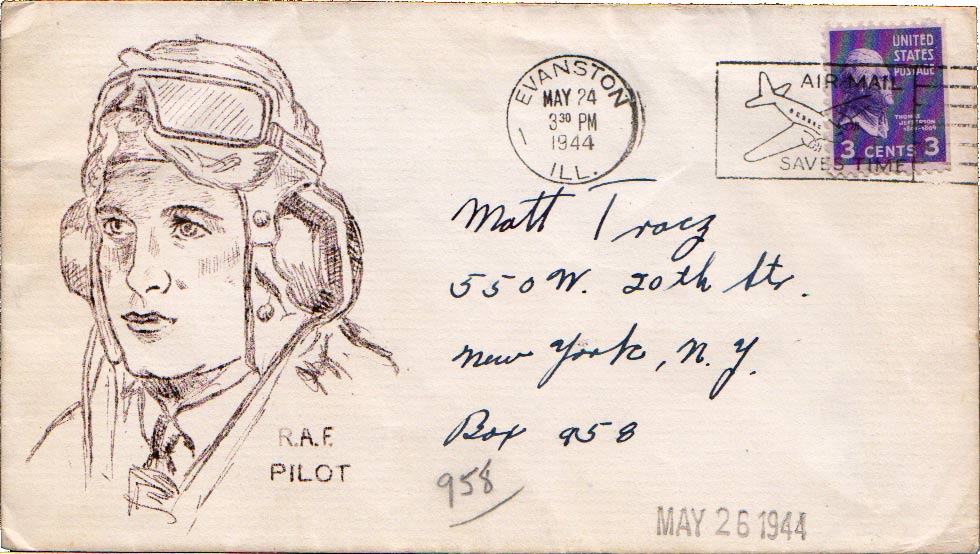 EVANSTON
MAY 24
3 30 PM
1944
ILL.
AIR MAIL
SAVES TIME
UNITED
STATES
POSTAGE
THOMAS
JEFFERSON
1801-1809
3 CENTS 3
Matt Tracz
550 W. 20th Str.
New York, N.Y.
Box 958
958
R.A.F.
PILOT
MAY 26 1944